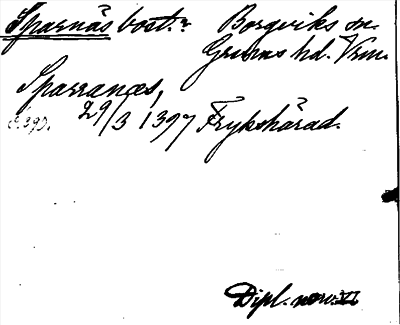 Sparnäs bost.n Borgviks sn.
Grums hd. Vrm.
Sparranæs,
29/3 1397 Frykshärad.
s. 390.
Dipl. norv. VI